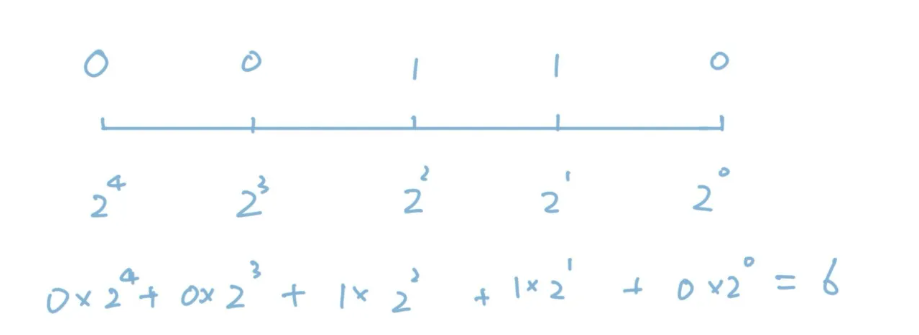 0 0 1 1 0
2⁴ 2³ 2² 2¹ 2⁰
0×2⁴+ 0×2³ + 1×2² + 1×2¹ + 0×2⁰ = 6